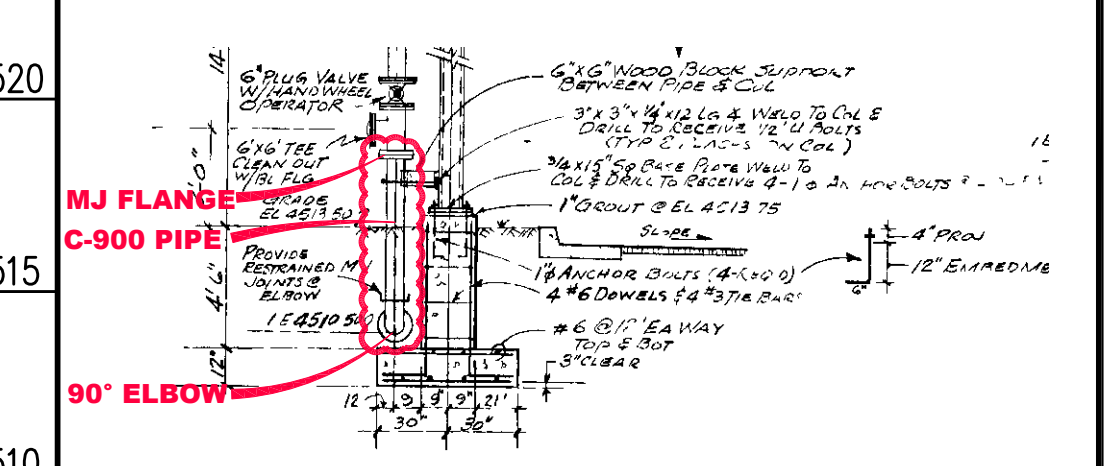 520
515
510
14
6" PLUG VALVE
W/HANDWHEEL
OPERATOR
6"X6" TEE
CLEAN OUT
W/BL FLG
GRADE
PROVIDE
RESTRAINED
JOINTS @
ELBOW
4'6"
12"
MJ FLANGE
C-900 PIPE
90° ELBOW
6"X6" WOOD BLOCK SUPPORT
BETWEEN PIPE & COL
3"X3"X1/4"X12 LG ∡ WELD TO COL &
DRILL TO RECEIVE 1/2" U BOLTS
(TYP COL)
3/4X15" SQ BASE PLATE WELD TO
COL & DRILL TO RECEIVE 4-1 φ
1" GROUT @ EL 4513 75
SLOPE
1"φ ANCHOR BOLTS
4 #6 DOWELS & 4 #3 TIE BARS
#6 @ 12" EA WAY
TOP & BOT
3" CLEAR
4" PROJ
12" EMBEDME
6"
12 9 9" 9" 21"
30" 30"